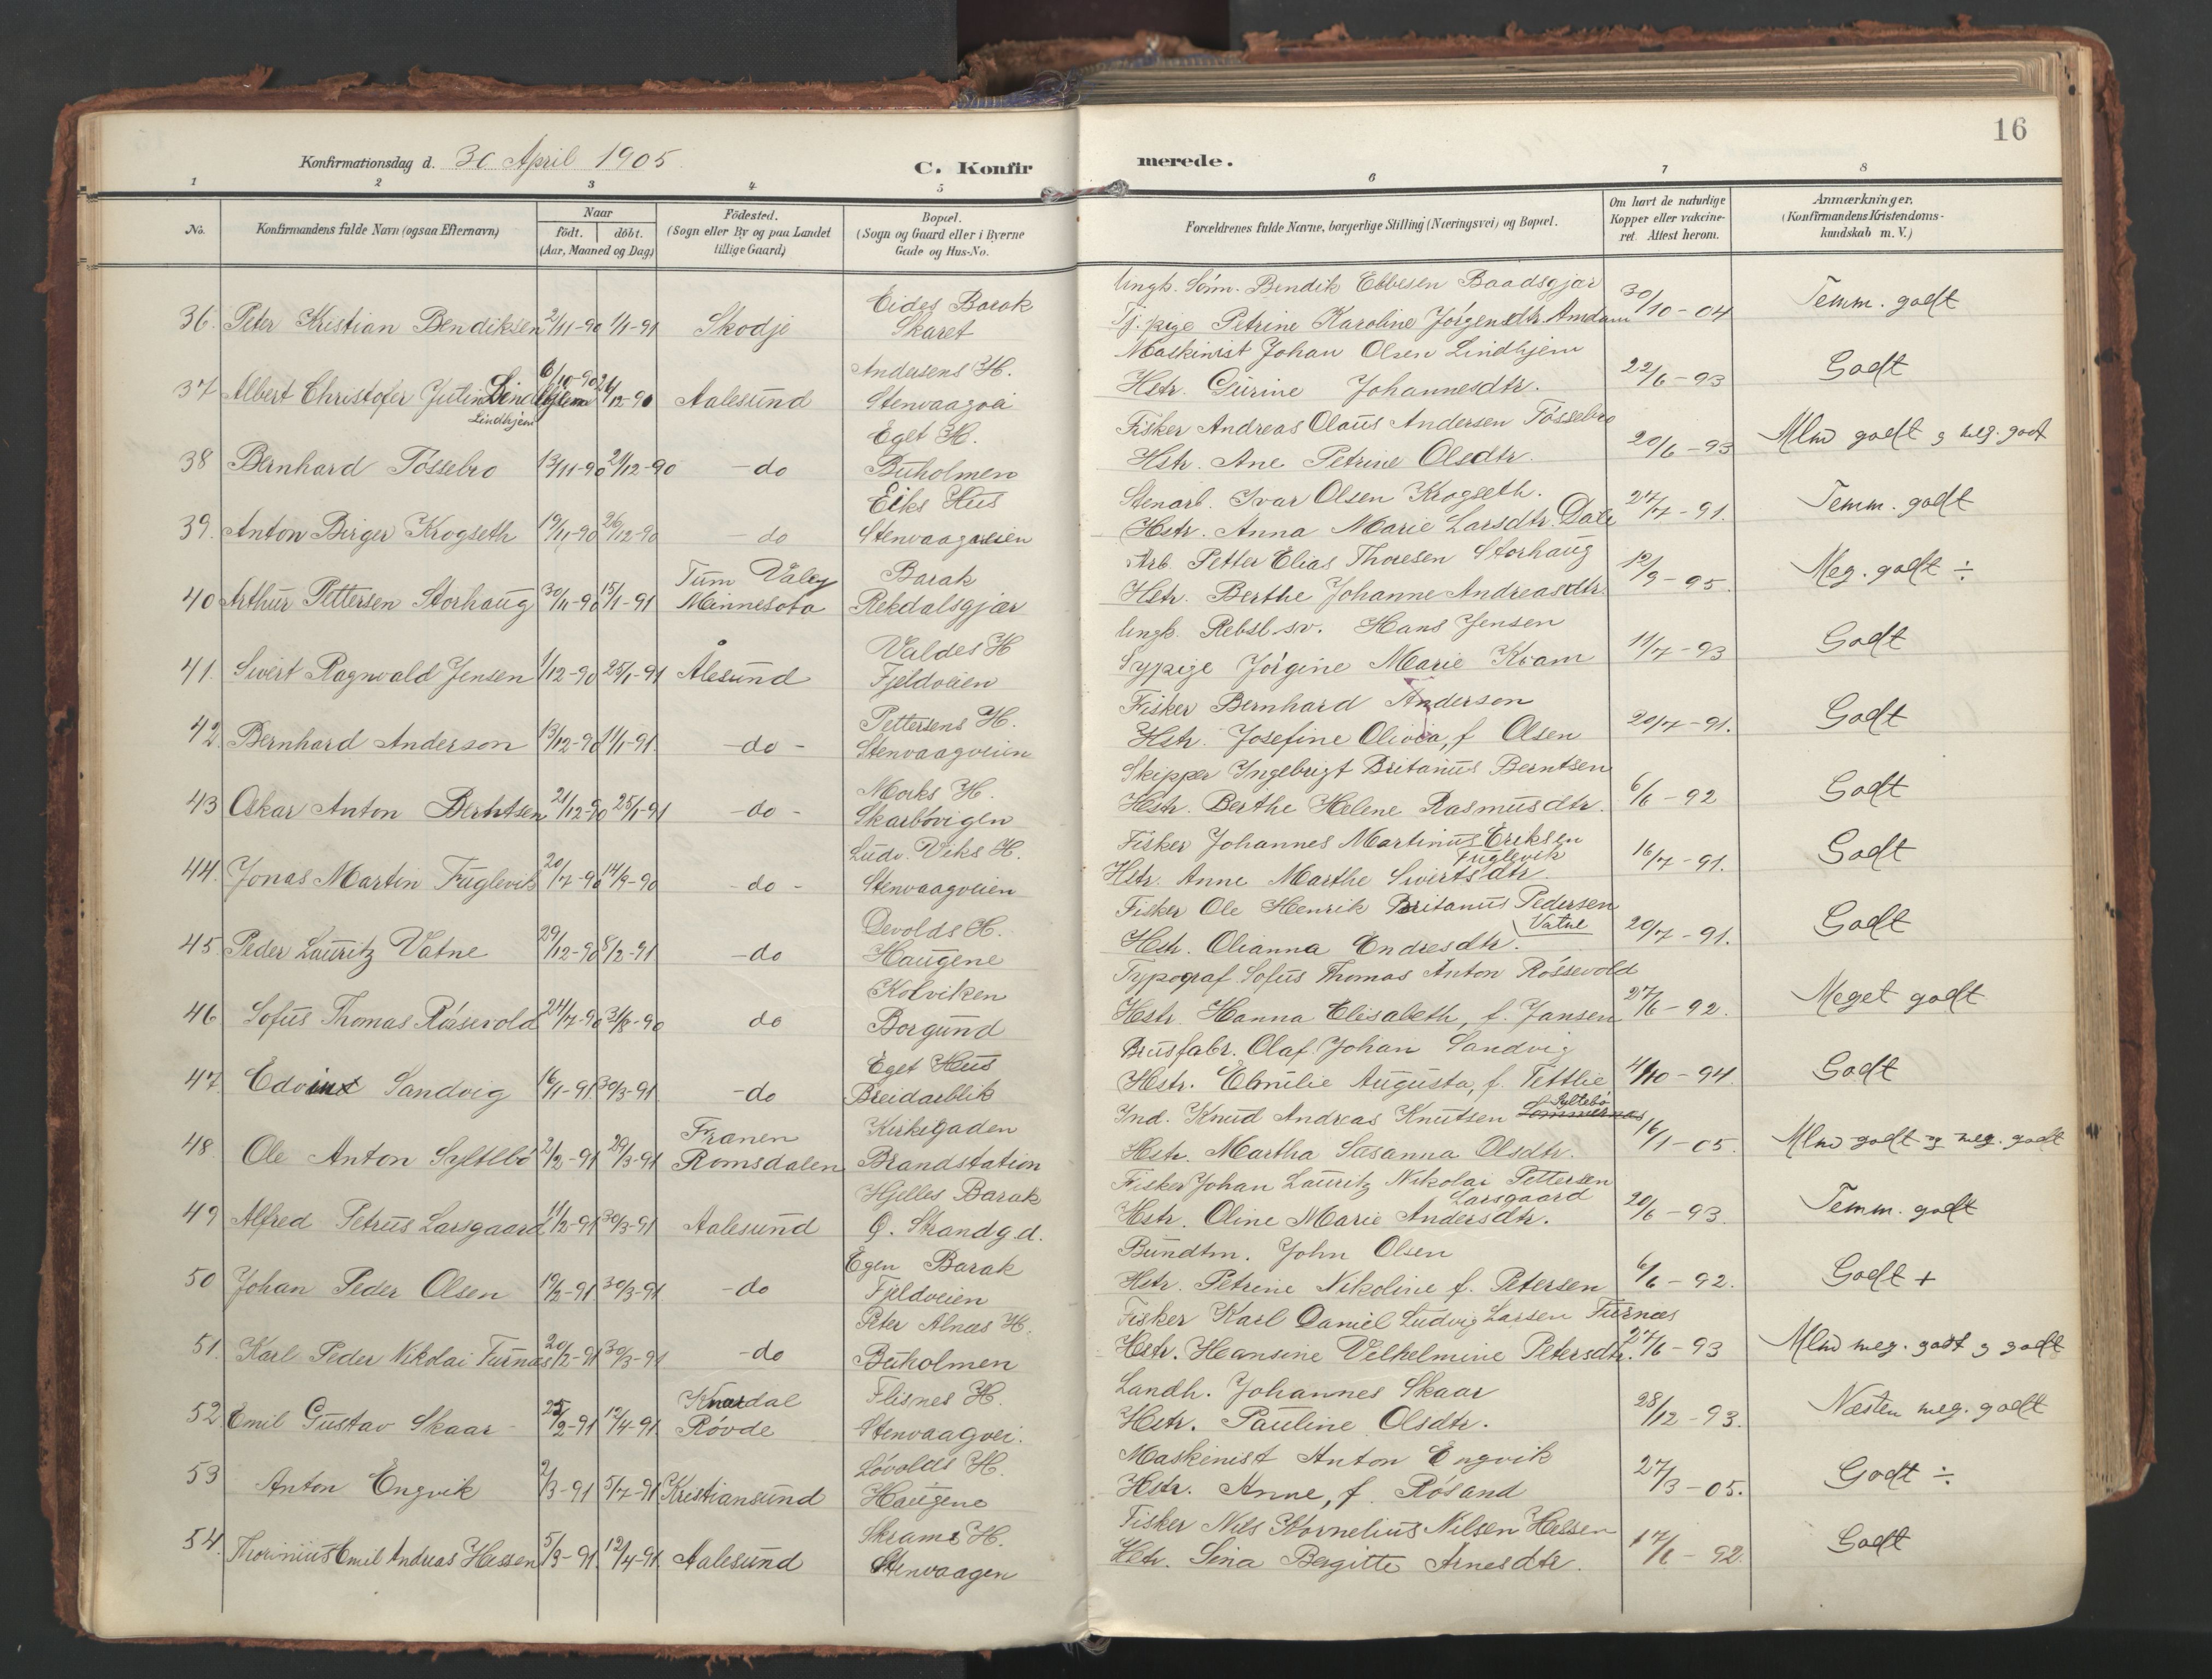 16
Konfirmationsdag d. 30 April 1905
C. Konfirmerede.
1 2 3 4 5 6 7 8
No.
Konfirmandens fulde Navn (ogsaa Efternavn)
Naar
født. døbt.
(Aar, Maaned og Dag)
Fødested.
(Sogn eller By og paa Landet
tillige Gaard)
Bopæl.
(Sogn og Gaard eller i Byerne
Gade og Hus-No.
Forældrenes fulde Navne, borgerlige Stilling (Næringsvei) og Bopæl.
Om havt de naturlige
Kopper eller vakcine-
ret. Attest herom.
Anmærkninger.
(Konfirmandens Kristendoms-
kundskab m. V.)
Eides Barak Ungk. Sønn. Bendik Ebbesen Baadsgjar
36. Peter Kristian Bendiksen 2/11-90 1/1-91 Skodje Skaret Tj. pige Petrine Karoline Jørgensdtr. Amdam 30/10-04 Temm. godt
Andersens H. Maskinist Johan Olsen Lindhjem
37 Albert Christofer Julin Lindhjem 6/10-90 26/12-90 Aalesund Stenvaagvei Hstr. Gurine Johannesdtr. 22/6-93 Godt
Lindhjem
Eget H. Fisker Andreas Olaus Andersen Tøssebro
38 Bernhard Tøssebro 13/11-90 21/12-90 -do Buholmen Hstr. Ane Petrine Olsdtr. 20/6-93 Mlm godt og meg. godt
Eiks Hus Stenarb. Ivar Olsen Krogseth.
39. Anton Birger Krogseth 19/11-90 26/12-90 -do Stenvaagveien Hstr. Anna Marie Larsdtr. Dale 27/7-91. Temm. godt
Tum Valey Barak Arb. Petter Elias Thoresen Storhaug
40 Arthur Pettersen Storhaug 30/11-90 15/1-91 Minnesota Rekdalsgjær Hstr. Berthe Johanne Andreasdtr. 12/9-95. Meg. godt ÷
Valdes H Ungk. Rebsl.sv. Hans Jensen
41. Sivert Ragnvald Jensen 1/12-90 25/1-91 Ålesund Fjeldveien Sypige Jørgine Marie Kvam 11/7-93 Godt
Pettersens H. Fisker Bernhard Anderson
42 Bernhard Anderson 13/12-90 11/1-91 -do- Stenvaagveien Hstr. Josefine Olivia, f Olsen 20/7-91. Godt
Morks H. Skipper Ingebrigt Britanius Berntsen
43 Oskar Anton Berntsen 21/12-90 25/1-91 -do- Skarbøvigen Hstr. Berthe Helene Rasmusdtr. 6/6-92 Godt
Ludv. Viks H. Fisker Johannes Martinus Eriksen Fuglevik
44. Jonas Martin Fuglevik 20/7-90 14/9-90 -do- Stenvaagveien Hstr. Anne Marthe Sivertsdtr. 16/7-91. Godt
Devolds H. Fisker Ole Henrik Britanus Pedersen Vatne
45. Peder Lauritz Vatne 29/12-90 8/2-91 -do Haugene Hstr. Olianna Endresdtr. 20/7-91. Godt
Kolviken Typograf Sofus Thomas Anton Røssevold
46 Sofus Thomas Røsevold 24/7-90 31/8-90 do Borgund Hstr. Hanna Elisabeth, f. Jansen 27/6-92. Meget godt
Eget Hus Brusfabr. Olaf Johan Sandvig
47 Edvin Sandvig 16/1-91 30/3-91 -do Breidarblik Hstr. Emilie Augusta, f. Tettlie 4/10-94 Godt
Frænen Kirkegaden Ind. Knud Andreas Knutsen Syltebø
48. Ole Anton Syltebø 2/2-91 29/3-91 Romsdalen Brandstation Hstr. Martha Susanna Olsdtr. 16/1-05. Mlm godt og meg. godt
Hjelles Barak Fisker Johan Lauritz Nikolai Pettersen Larsgaard
49 Alfred Petrus Larsgaard 11/2-91 30/3-91 Aalesund Ø. Strandg.d. Hstr. Oline Marie Andersdtr. 20/6-93. Temm. godt
Egen Barak Bundtm. John Olsen
50 Johan Peder Olsen 19/2-91 30/3-91 -do Fjeldveien Hstr. Petrine Nikoline f. Petersen 6/6-92. Godt +
Peter Alnæs H. Fisker Karl Daniel Ludvig Larsen Furnæs
51. Karl Peder Nikolai Furnæs 20/2-91 30/3-91 -do Buholmen Hstr. Hansine Velhelmine Petersdtr. 27/6-93 Mlm meg. godt og godt
Flisnes H. Landh. Johannes Skaar
52 Emil Gustav Skaar 25/2-91 12/4-91 Røvde Stenvaagvei. Hstr. Pauline Olsdtr. 28/12-93. Næsten meg. godt
Løvolds H. Maskinist Anton Engvik
53 Anton Engvik 2/3-91 5/7-91 Kristiansund Haugene Hstr. Anne, f. Røsand 27/3-05. Godt ÷
Skrams H. Fisker Nils Kornelius Nilsen Hessen
54. Thorinius Emil Andreas Hessen 5/3-91. 12/4-91. Aalesund Stenvaagen Hstr. Sina Bergitte Arnesdtr. 17/6-92. Godt